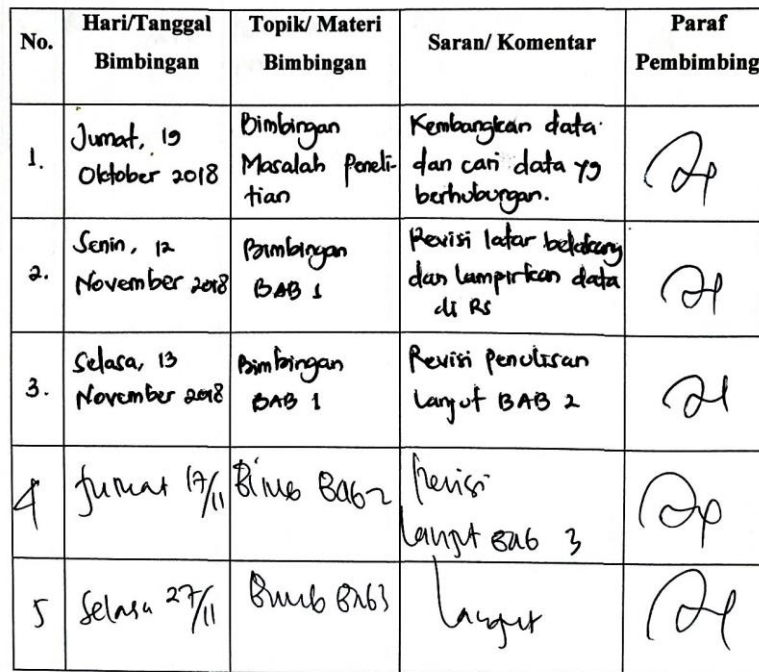 No.
Hari/Tanggal
Bimbingan
Topik/ Materi
Bimbingan
Saran/ Komentar
Paraf
Pembimbing
1.
Jumat, 19
Oktober 2018
Bimbingan
Masalah Peneli-
tian
Kembangkan data
dan cari data yg
berhubungan.
2.
Senin, 12
November 2018
Bimbingan
BAB 1
Revisi latar belakang
dan lampirkan data
di RS
3.
Selasa, 13
November 2018
Bimbingan
BAB 1
Revisi Penulisan
Lanjut BAB 2
4
Jumat 17/11
Bimb Bab 2
Revisi
Lanjut Bab 3
5
Selasa 27/11
Bimb Bab 3
Lanjut